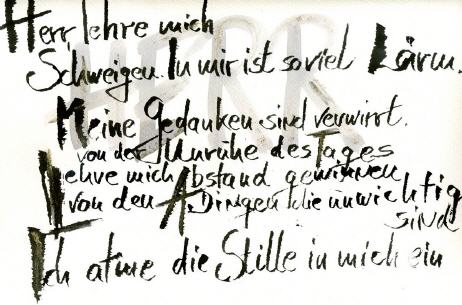 Herr, lehre mich
Schweigen. In mir ist so viel Lärm.
HERR
Meine Gedanken sind verwirrt.
von der Unruhe des Tages
Lehre mich Abstand gewinnen
von den Dingen die unwichtig
sind
Ich atme die Stille in mich ein